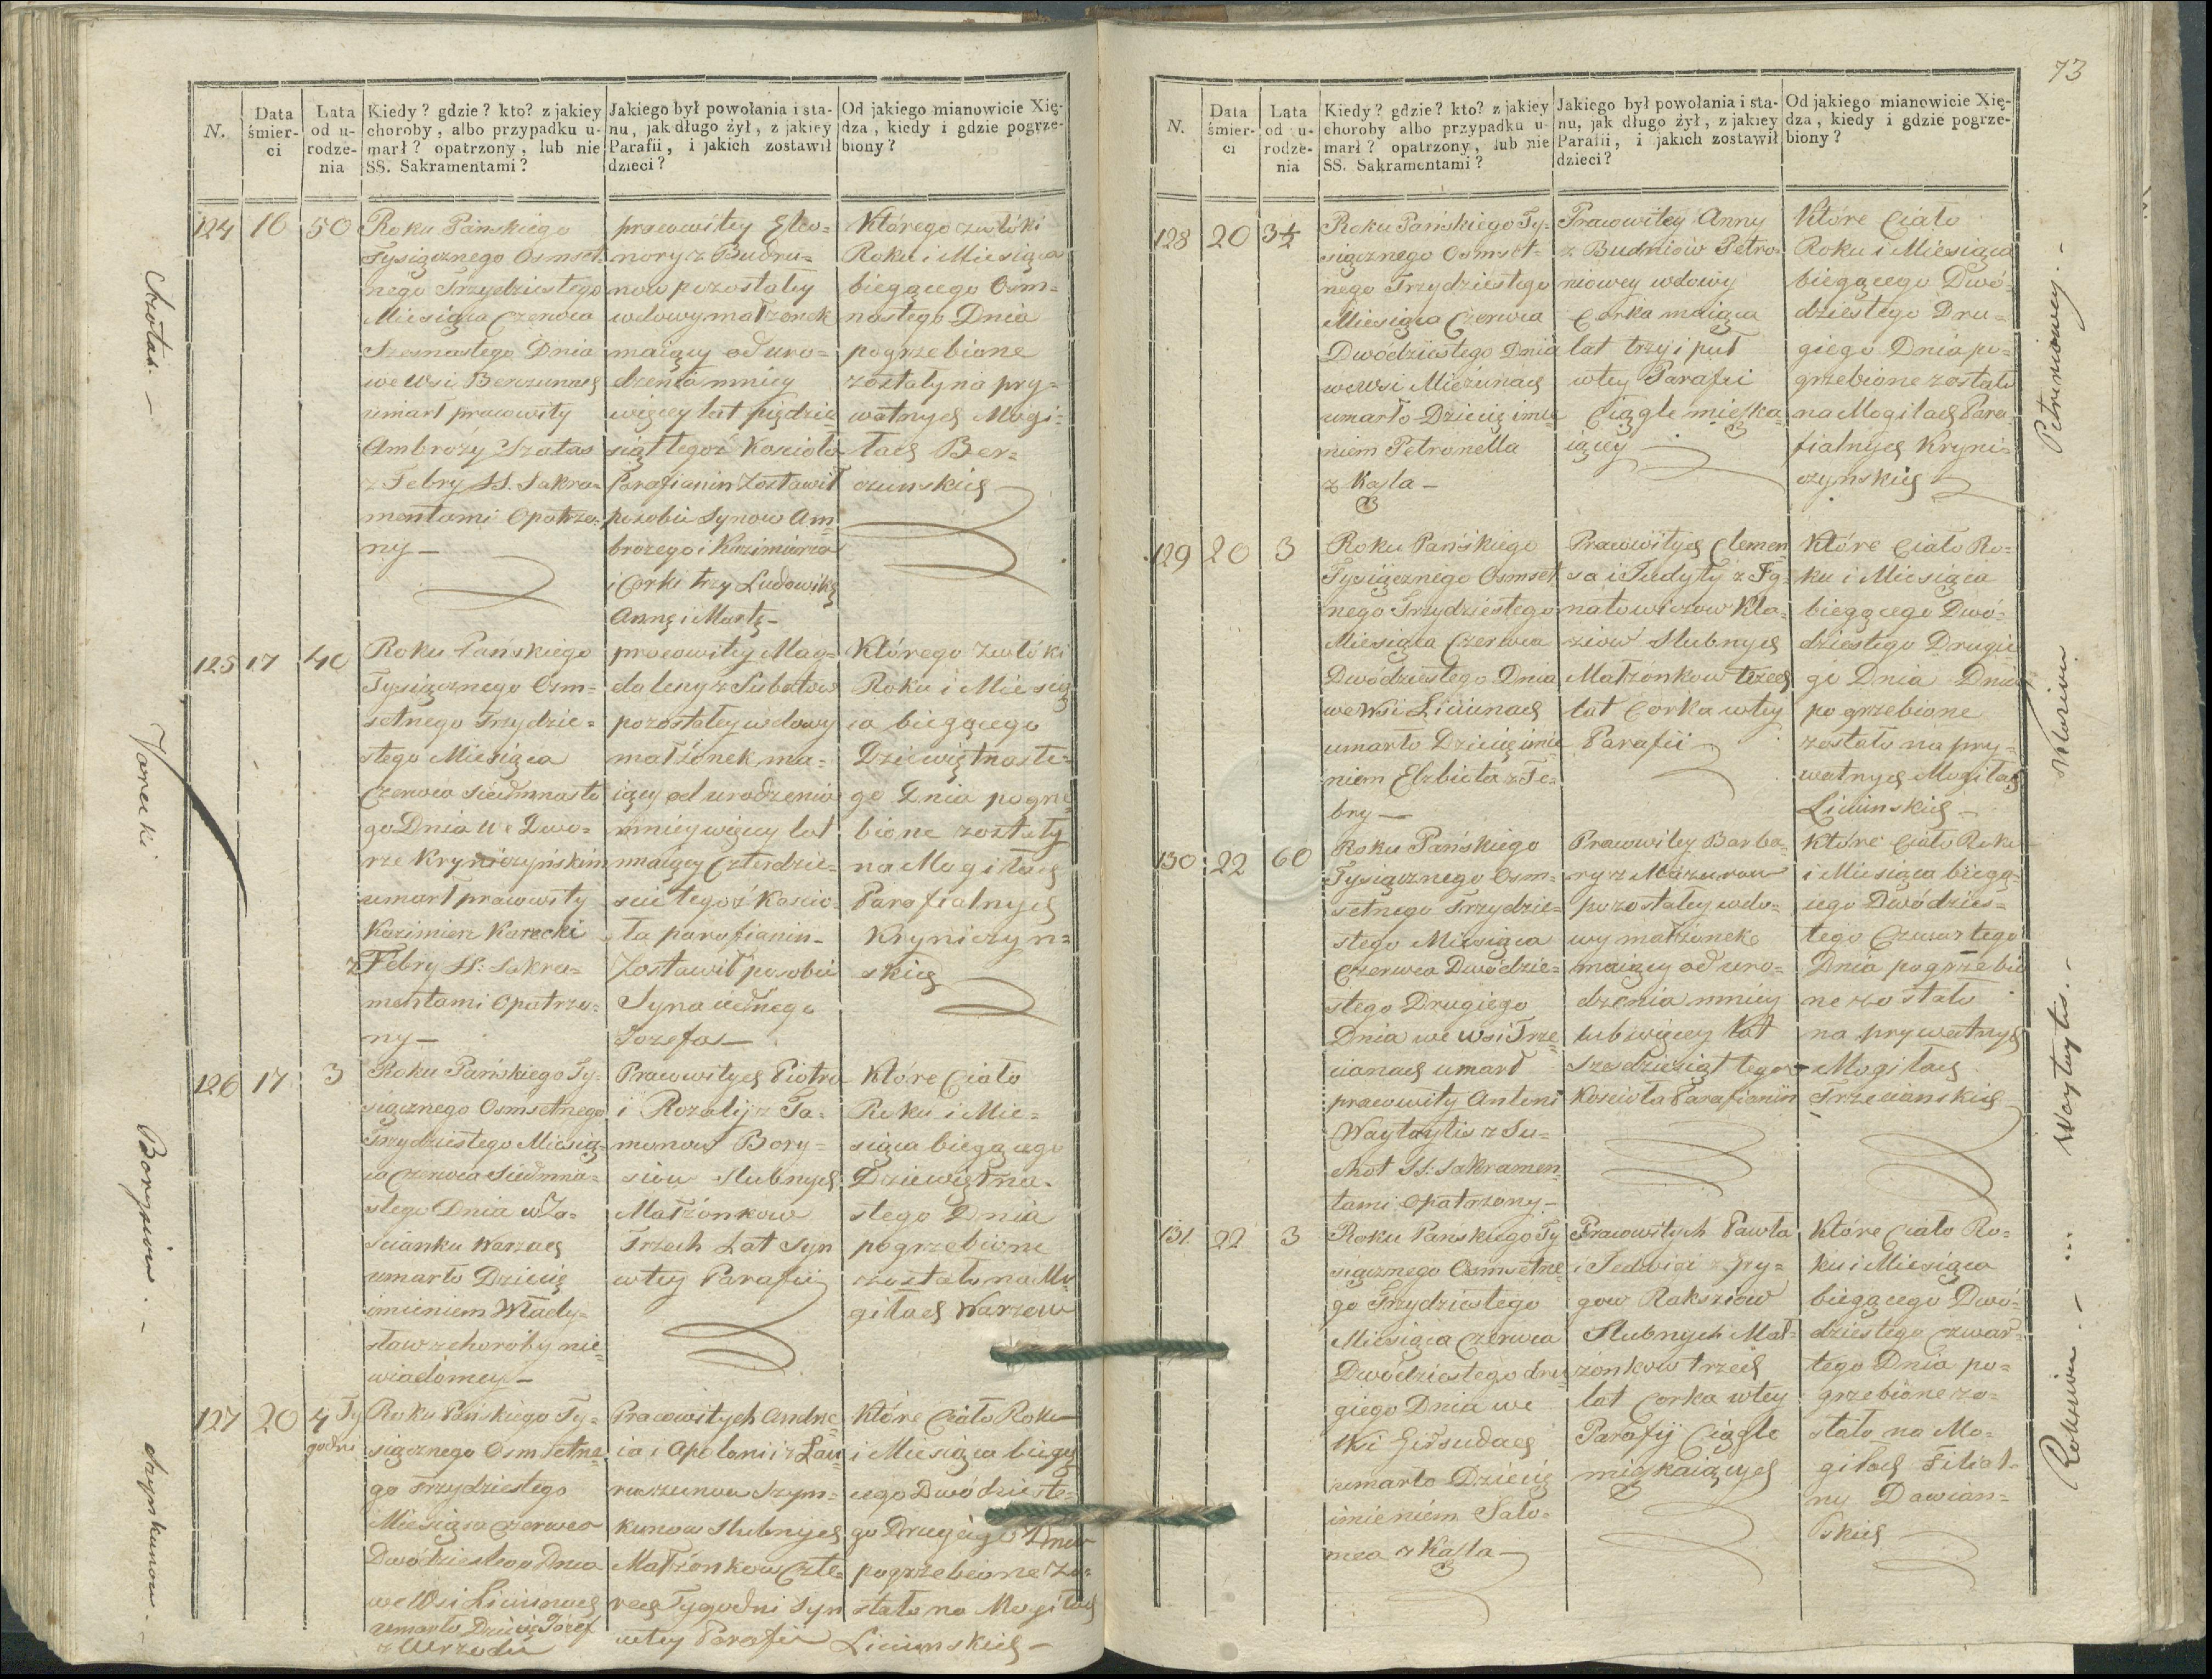 N.
Data śmier- ci
Lata od u- rodze- nia
Kiedy? gdzie? kto? z jakiey choroby, albo przypadku u- marł? opatrzony, lub nie SS. Sakramentami?
Jakiego był powołania i sta- nu, jak długo żył, z jakiey Parafii, i jakich zostawił dzieci?
Od jakiego mianowicie Xię- dza, kiedy i gdzie pogrze- biony?
124
16
50
Roku Pańskiego
Tysiącznego Osmset-
nego Trzydziestego
Miesiąca Czerwca
Szesnastego Dnia
we Wsi Berczunach
umarł pracowity
Ambroży Szołas
z Febry SS. Sakra-
mentami Opatrzo-
ny —
pracowitey Eleo-
nory z Budru-
now pozostałey
wdowy małżonek
maiący od uro-
dzenia mniey
więcey lat pięzdzie
siąt tegoż Kościoła
Parafianin Zostawił
po sobie Synow Am-
brożego i Kazimierza
i Corki trzy Ludowikę
Annę i Martę —
Którego zwłóki
Roku i Miesiąca
biegącego Osm-
nastego Dnia
pogrzebione
zostały na pry-
watnych Mogi-
łach Ber-
czunskich
125
17
40
Roku Pańskiego
Tysiącznego Osm-
setnego Trzydzie-
stego Miesiąca
Czerwca Siedmnaste
go Dnia We Dwo-
rze Kryniczyńskim
umarł pracowity
Kazimierz Karecki
z Febry SS: Sakra-
mentami Opatrzo-
ny —
pracowitey Mag-
daleny z Subotow
pozostałey wdowy
małżonek, ma-
iący od urodzenia
mniey więcey lat
maiący Czterdzie-
ści tegoż Kościo-
ła parafianin —
Zostawił po sobie
Syna iednego
Jozefa —
Którego Zwłóki
Roku i Miesią
ca biegącego
Dziewiętnaste-
go Dnia pogrze
bione zostały
na Mogiłach
Parafialnych
Kryniczyn-
skich
126
17
3
Roku Pańskiego Ty-
siącznego Osmsetnego
Trzydziestego Miesią-
ca Czerwca Siedmna-
stego Dnia w Za-
scianku Warzach
umarło Dziecię
imieniem Włady-
sław z choroby nie
wiadomey —
Pracowitych Piotra
i Rozalij z Ta-
munow Bory-
siow Slubnych
Małżonkow
Trzech Lat Syn
w tey Parafii
Które Ciało
Roku i Mie-
siąca biegącego
Dziewiętna-
stego Dnia
pogrzebione
zostało na Mo
giłach Warzow
127
20
4 Ty
godni
Roku Pańskiego Ty-
siącznego Osmsetne
go Trzydziestego
Miesiąca Czerwca
Dwódziestego Dnia
we Wsi Liciunach
umarło Dziecię Jozef
z Wrzodu
Pracowitych Andrze
ia i Apolonii z Lau
ruszunow Szym-
kunow Slubnych
Małżonkow Czte-
rech Tygodni Syn
w tey Parafii
Które Ciało Roku
i Miesiąca biegą
cego Dwódzieste-
go Drugiego Dnia
pogrzebione Zo-
stało na Mogiłach
Liciunskich —
Szołas. —
Karecki
Borysiow. —
Szymkunow. —
73
N.
Data śmier- ci
Lata od u- rodze- nia
Kiedy? gdzie? kto? z jakiey choroby albo przypadku u- marł? opatrzony, lub nie SS. Sakramentami?
Jakiego był powołania i sta- nu, jak długo żył, z jakiey Parafii, i jakich zostawił dzieci?
Od jakiego mianowicie Xię- dza, kiedy i gdzie pogrze- biony?
128
20
3½
Roku Pańskiego Ty-
siącznego Osmset-
nego Trzydziestego
Miesiąca Czerwca
Dwódziestego Dnia
we Wsi Mieżunach
umarło Dziecię imie
niem Petronella
z Kaszla —
Pracowitey Anny
z Budniow Petro-
niowey wdowy
Corka maiąca
lat trzy i puł
w tey Parafii
Ciągle mieszka-
iącey
Które Ciało
Roku i Miesiąca
biegącego Dwó-
dziestego Dru-
giego Dnia po-
grzebione zostało
na Mogiłach Para
fialnych Kryni-
czyńskich
129
20
3
Roku Pańskiego
Tysiącznego Osmset
nego Trzydziestego
Miesiąca Czerwca
Dwódziestego Dnia
we Wsi Liciunach
umarło Dziecię imie
niem Elzbieta z Fe-
bry —
Pracowitych Clemen
sa i Judyty z Ig-
natowiczow Kla-
ziow Slubnych
Małżonkow trzech
lat Corka w tey
Parafii
Które Ciało Ro-
ku i Miesiąca
biegącego Dwó-
dziestego Drugie
go Dnia Dnia
pogrzebione
zostało na pry-
watnych Mogiłach
Liciunskich —
130
22
60
Roku Pańskiego
Tysiącznego Osm-
setnego Trzydzie-
stego Miesiąca
Czerwca Dwódzie-
stego Drugiego
Dnia we Wsi Trze
cianach umarł
pracowity Antoni
Waytaytis z Su-
chot SS: Sakramen
tami Opatrzony —
Pracowitey Barba-
ry z Mazurow
pozostałey wdo-
wy małżonek
maiący od uro-
dzenia mniey
lub więcey lat
szesdziesiąt tegoż
Kościoła Parafianin
Które Ciało Roku
i Miesiąca biegą-
cego Dwódzies-
tego Czwartego
Dnia pogrzebio
ne zostało
na prywatnych
Mogiłach
Trzecianskich
131
22
3
Roku Pańskiego Ty
siącznego Osmsetne-
go Trzydziestego
Miesiąca Czerwca
Dwódziestego dru
giego Dnia we
Wsi Girsudach
umarło Dziecię
imieniem Salo-
mea z Kaszla —
Pracowitych Pawła
i Jedwigi z Gry-
gow Raksziow
Slubnych Mał-
żonkow trzech
lat Corka w tey
Parafij Ciągle
mięszkaiących
Które Ciało Ro-
ku i Miesiąca
biegącego Dwó-
dziestego Czwar-
tego Dnia po-
grzebione zo-
stało na Mo-
giłach Filial-
ny Dawian-
skich
Petruniowey. —
Waytaytis. —